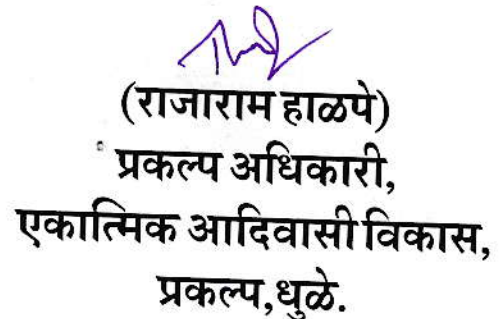 (राजाराम हाळपे)
प्रकल्प अधिकारी,
एकात्मिक आदिवासी विकास,
प्रकल्प,धुळे.